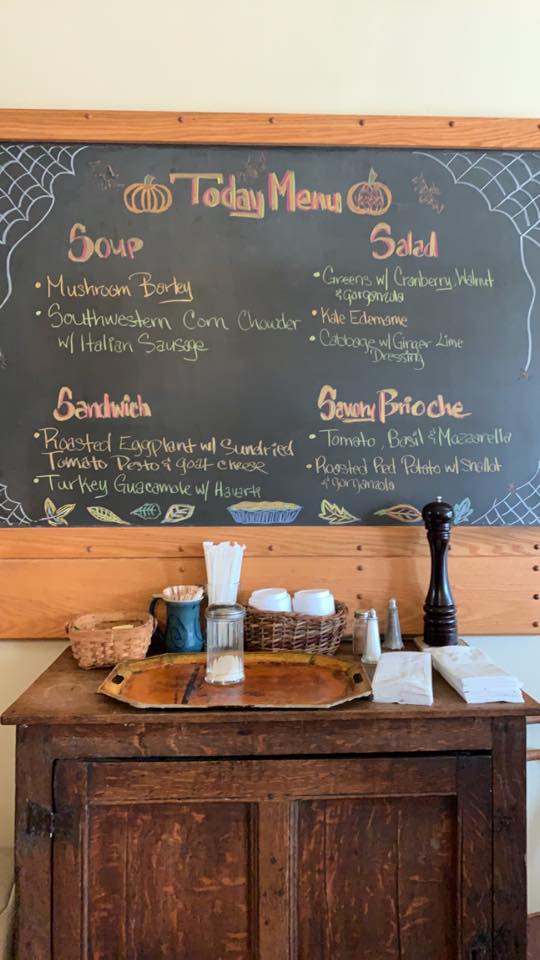 Today Menu
Soup
• Mushroom Barley
• Southwestern Corn Chowder
w/ Italian Sausage
Salad
• Greens w/ Cranberry, Walnut
& gorgonzola
• Kale Edemame
• Cabbage w/ Ginger Lime
Dressing
Sandwich
• Roasted Eggplant w/ Sundried
Tomato Pesto & goat cheese
• Turkey Guacamole w/ Havarti
Savory Brioche
• Tomato, Basil & Mozzarella
• Roasted Red Potato w/ Shallot
& gorgonzola